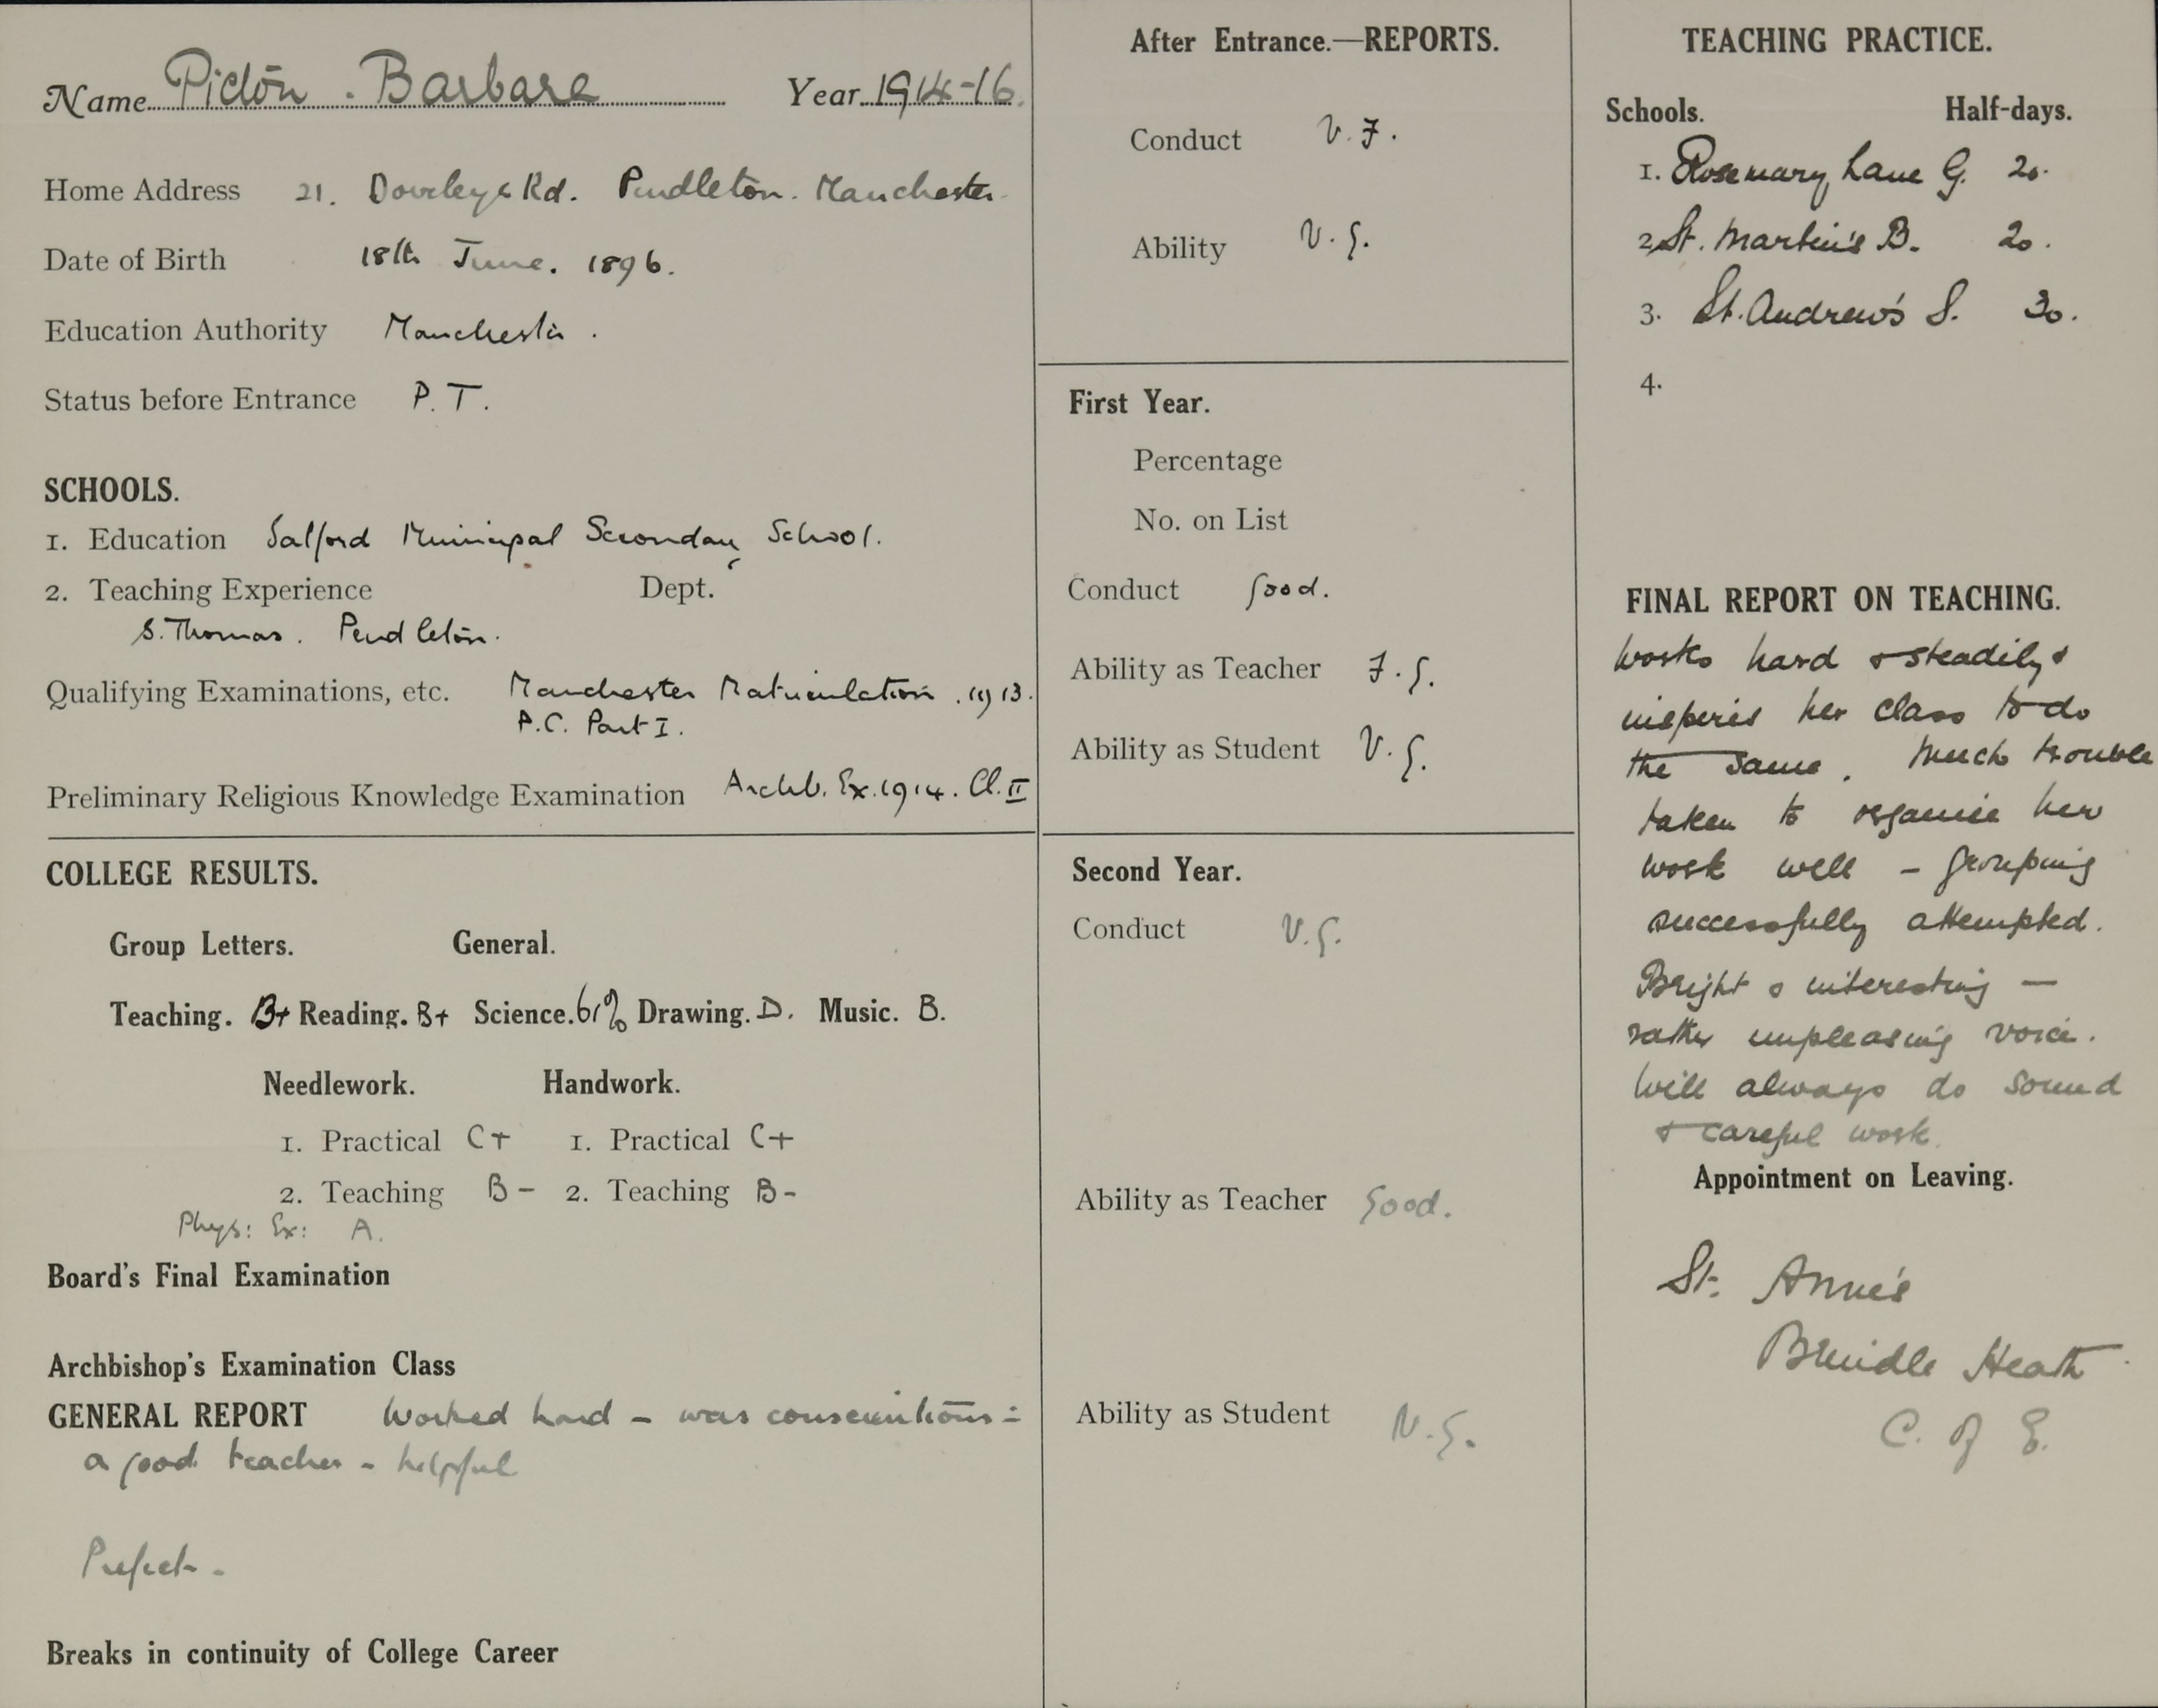 Name Picton . Barbara Year 1914-16.
Home Address 21. Doveleys Rd. Pendleton. Manchester.
Date of Birth 18th June. 1896.
Education Authority Manchester.
Status before Entrance P. T.
SCHOOLS.
1. Education Salford Municipal Secondary School.
2. Teaching Experience Dept.
S. Thomas. Pendleton.
Qualifying Examinations, etc. Manchester Matriculation . 1913.
P.C. Part I.
Preliminary Religious Knowledge Examination Archb. Ex. 1914. Cl. II
COLLEGE RESULTS.
Group Letters. General.
Teaching. B+ Reading. B+ Science. 61% Drawing. D. Music. B.
Needlework. Handwork.
1. Practical C+ 1. Practical C+
2. Teaching B- 2. Teaching B-
Phys: Ex: A.
Board's Final Examination
Archbishop's Examination Class
GENERAL REPORT Worked hard - was conscientious -
a good teacher - helpful
Prefect -
Breaks in continuity of College Career
After Entrance.—REPORTS.
Conduct V. F.
Ability V. G.
First Year.
Percentage
No. on List
Conduct Good.
Ability as Teacher F. G.
Ability as Student V. G.
Second Year.
Conduct V. G.
Ability as Teacher Good.
Ability as Student V. G.
TEACHING PRACTICE.
Schools. Half-days.
1. Rosemary Lane G. 20.
2. St. Martin's B. 20.
3. St. Andrew's S. 30.
4.
FINAL REPORT ON TEACHING.
Works hard & steadily &
inspires her class to do
the same. Much trouble
taken to organise her
work well - grouping
successfully attempted.
Bright & interesting —
rather unpleasing voice.
Will always do sound
& careful work.
Appointment on Leaving.
St. Anne's
Brindle Heath
C. of E.